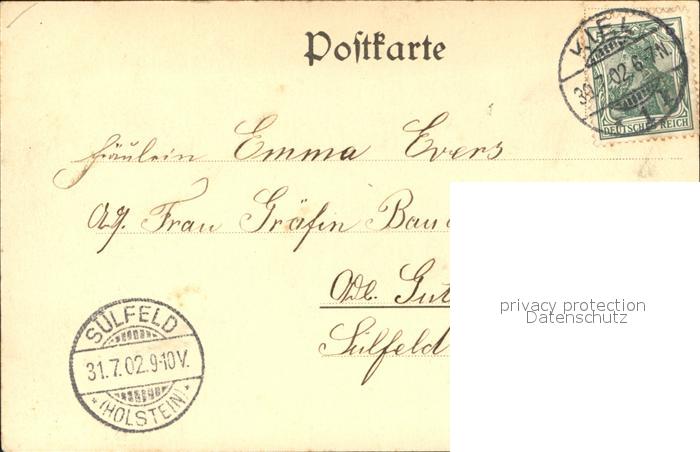 Postkarte
KIEL
30.7.02.6-7N.
1
5
DEUTSCHES REICH
Fräulein Emma Evers
Frau Gräfin
Adl. Gut
Sülfeld
SÜLFELD
31.7.02.9-10V.
*(HOLSTEIN)*
privacy protection
Datenschutz